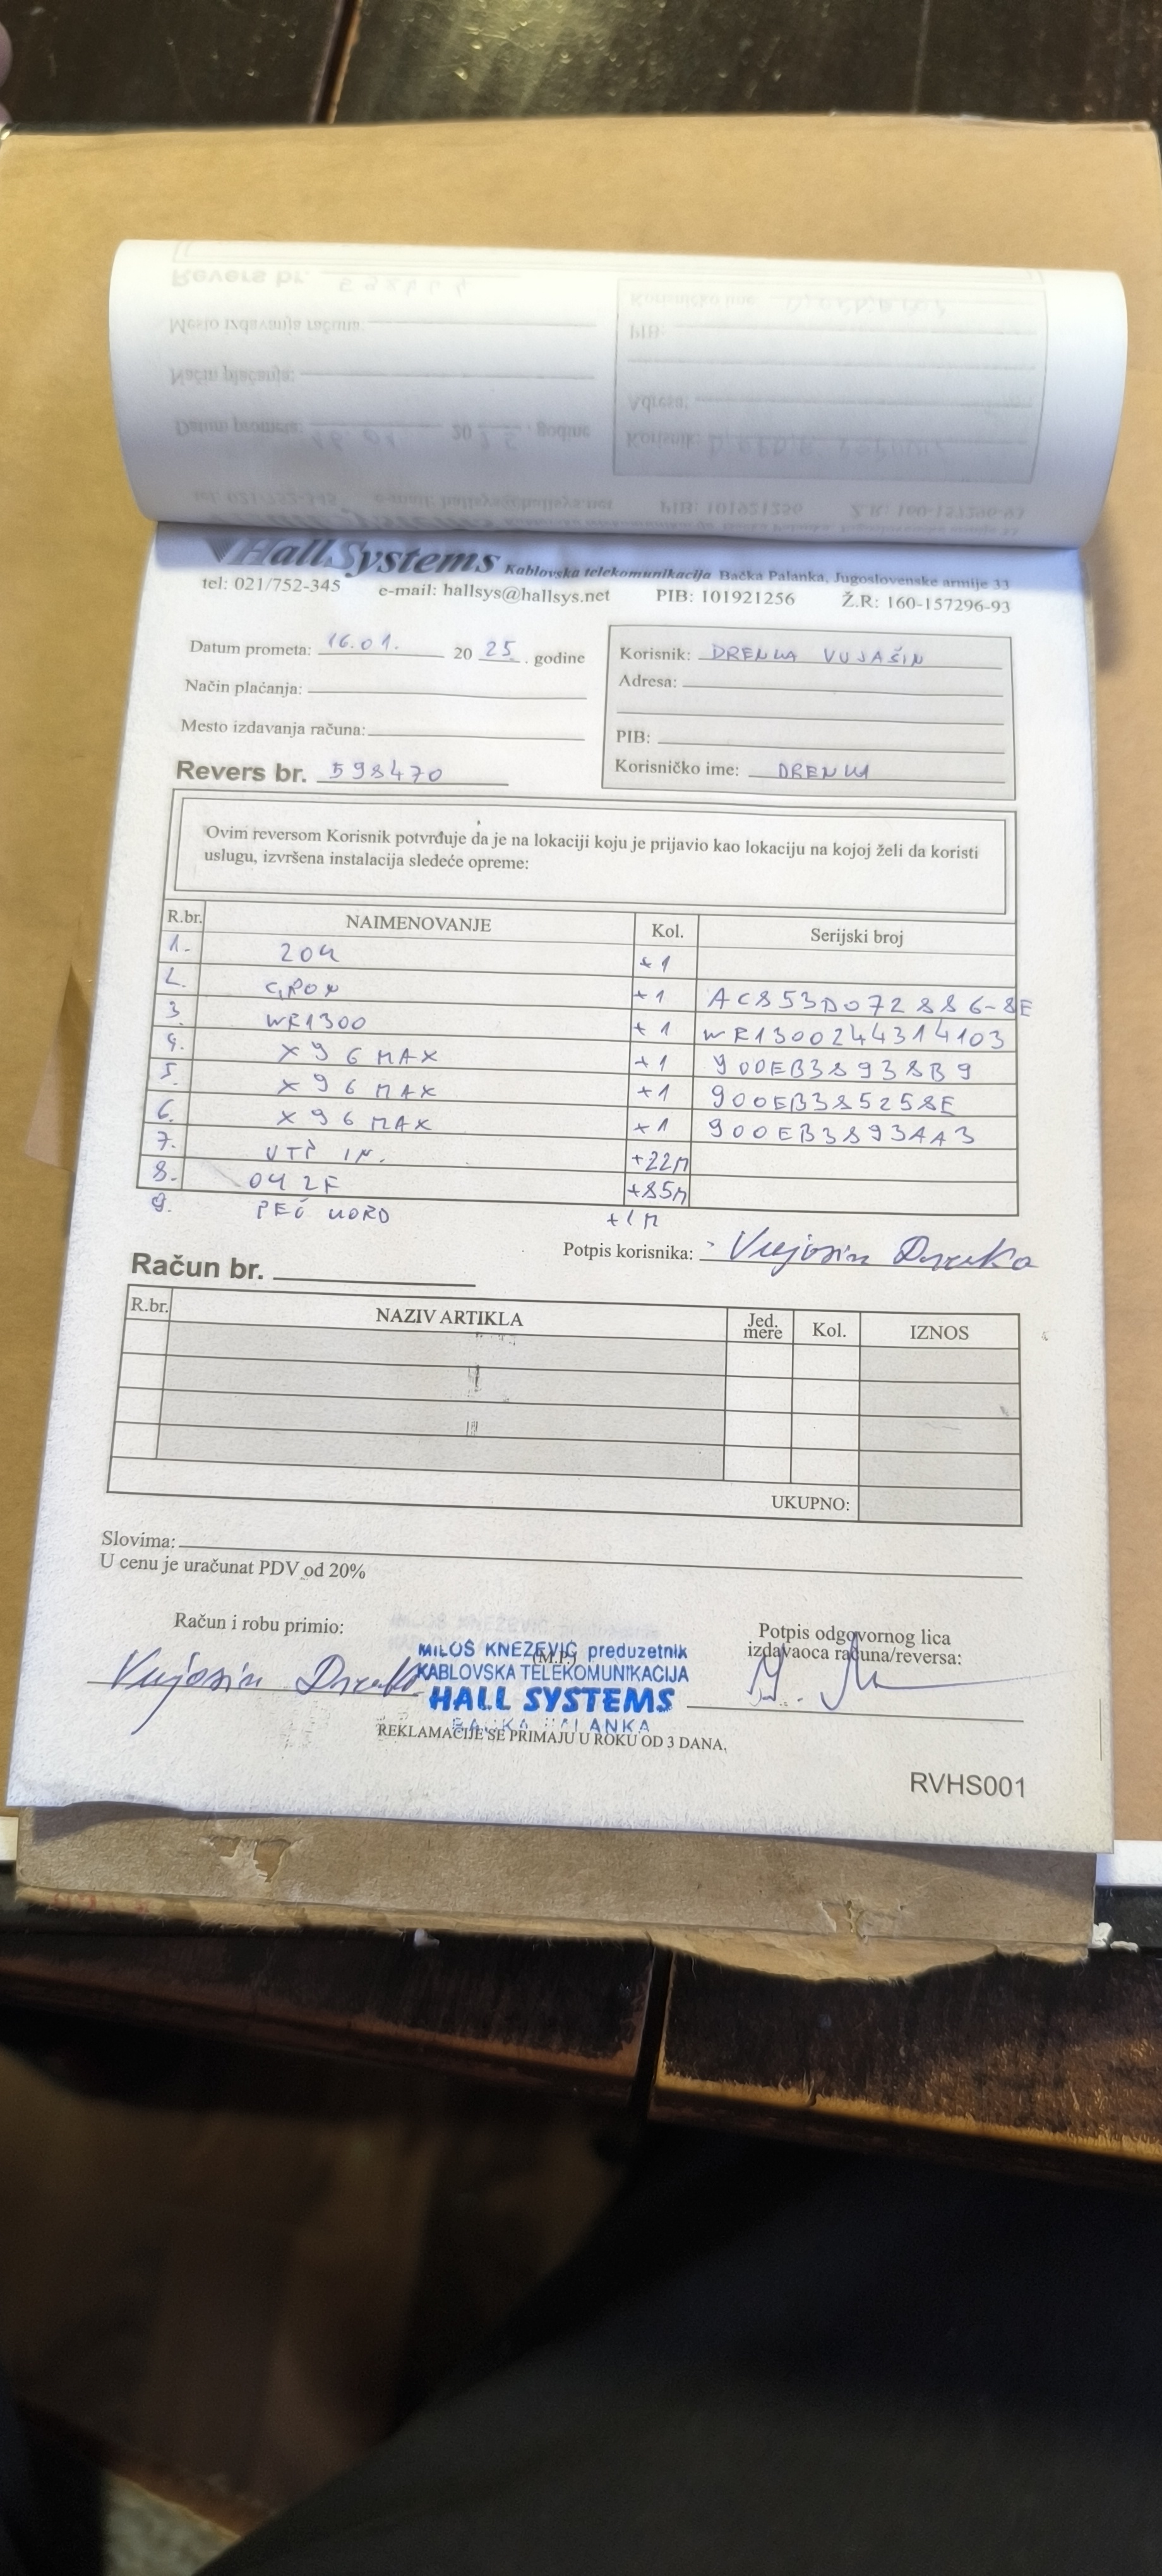 HallSystems Kablovska telekomunikacija Bačka Palanka, Jugoslovenske armije 33
tel: 021/752-345 e-mail: hallsys@hallsys.net PIB: 101921256 Ž.R: 160-157296-93
Datum prometa: 16.01. 20 25. godine
Način plaćanja:
Mesto izdavanja računa:
Revers br. 598470
Korisnik: DRENKA VUJAŠIN
Adresa:
PIB:
Korisničko ime: DRENKA
Ovim reversom Korisnik potvrđuje da je na lokaciji koju je prijavio kao lokaciju na kojoj želi da koristi
uslugu, izvršena instalacija sledeće opreme:
R.br. NAIMENOVANJE Kol. Serijski broj
1. 204 +1
2. GPON +1 AC853D072886-8E
3. WR1300 +1 WR1300244314103
4. X96 MAX +1 900EB38938B9
5. X96 MAX +1 900EB385258E
6. X96 MAX +1 900EB3893AA3
7. UTP IN. +22M
8. OK 2F +85M
9. PEČ KORD +1M
Potpis korisnika: Vujosin Drenka
Račun br.
R.br. NAZIV ARTIKLA Jed. mere Kol. IZNOS
UKUPNO:
Slovima:
U cenu je uračunat PDV od 20%
Račun i robu primio:
Vujosin Drenka
(M.P.)
MILOŠ KNEŽEVIĆ preduzetnik
KABLOVSKA TELEKOMUNIKACIJA
HALL SYSTEMS
BAČKA PALANKA
Potpis odgovornog lica
izdavaoca računa/reversa:
REKLAMACIJE SE PRIMAJU U ROKU OD 3 DANA.
RVHS001